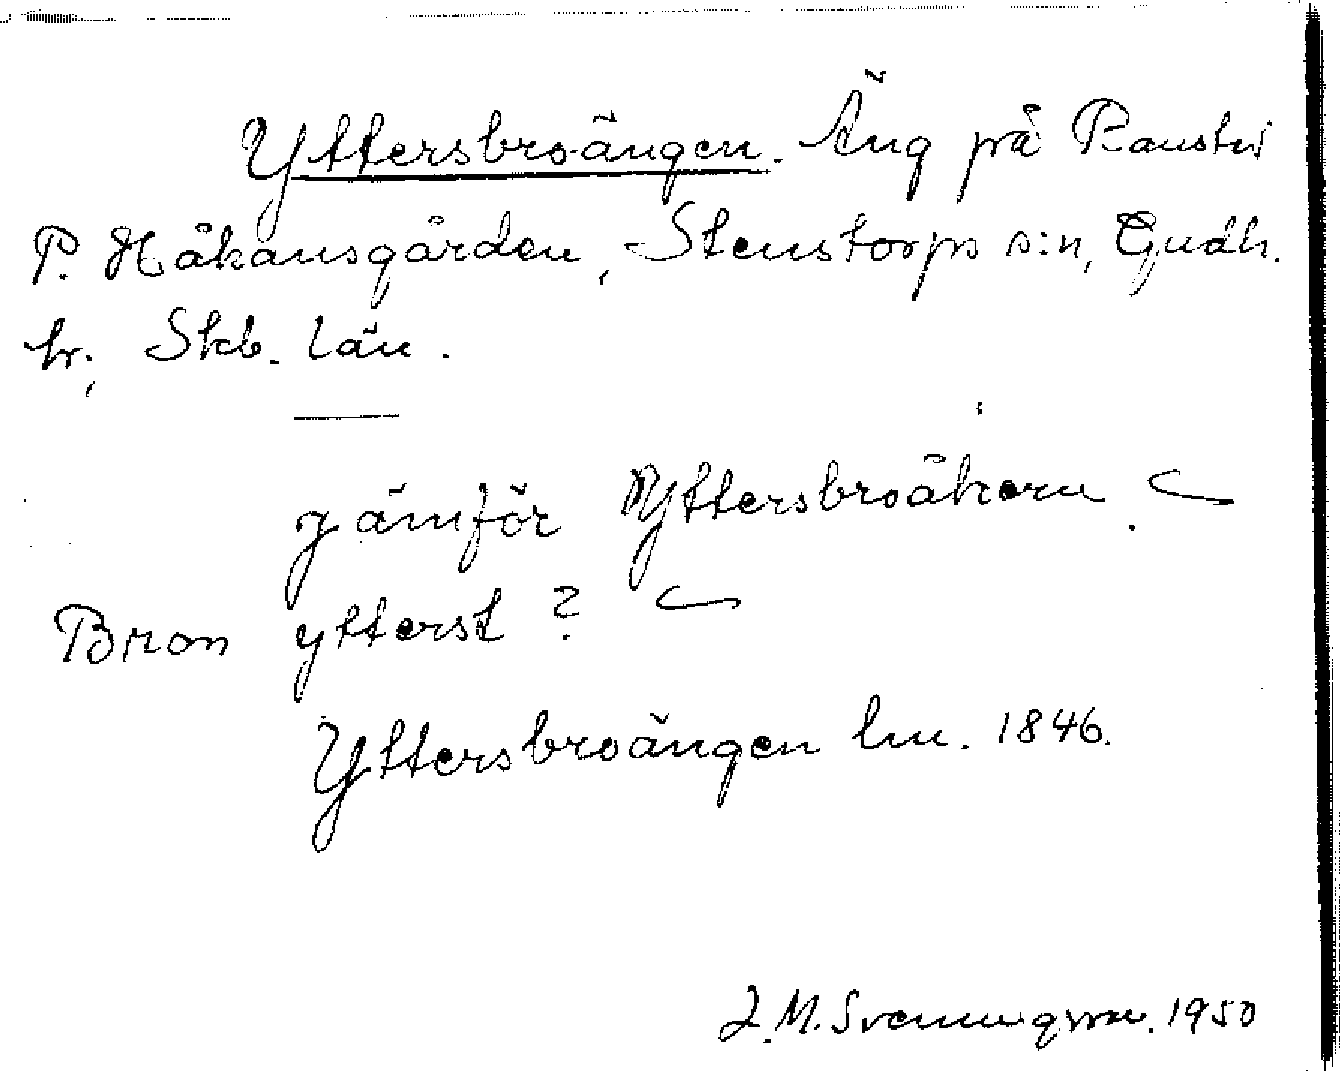 Yttersbroängen. Äng på Ranstú
P. Håkansgården, Stenstorps s:n, Gudh.
hr, Skb. län.
jämför Yttersbroåkern.
Bron ytterst?
Yttersbroängen lm. 1846.
J. M. Svenungsson. 1950